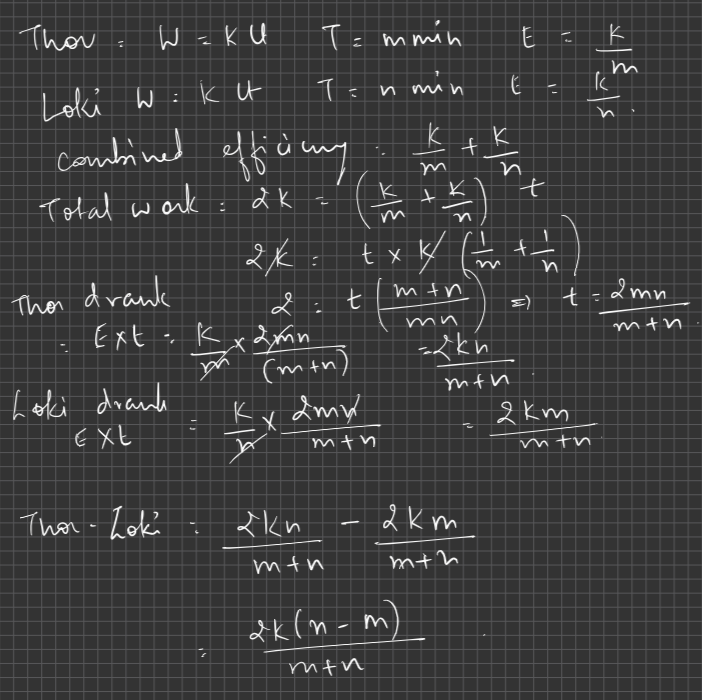 Thor : W = K U T = m min E = K/m
Loki W : K U T = n min E = K/n.
Combined efficiency : K/m + K/n
Total work : 2K = (K/m + K/n) t
2K : t x K (1/m + 1/n)
2 : t (m+n/mn) => t = 2mn/m+n
Thor drank
= E x t = K/m x 2mn/(m+n) = 2kn/m+n.
Loki drank
E x t = K/n x 2mn/m+n = 2km/m+n
Thor - Loki : 2kn/m+n - 2km/m+n
= 2k(n-m)/m+n